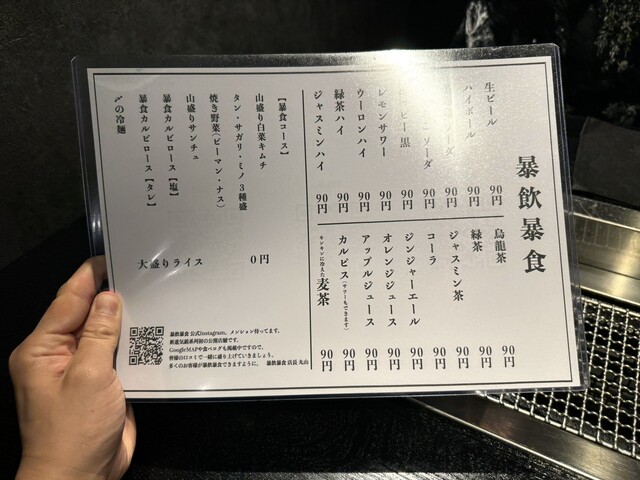 暴飲暴食
生ビール 90円
ハイボール 90円
90円
ソーダ 90円
黒 90円
レモンサワー 90円
ウーロンハイ 90円
緑茶ハイ 90円
ジャスミンハイ 90円
烏龍茶 90円
緑茶 90円
ジャスミン茶 90円
コーラ 90円
ジンジャーエール 90円
オレンジジュース 90円
アップルジュース 90円
カルピス(サワーもできます) 90円
キンキンに冷えた麦茶 90円
【暴食コース】
山盛り白菜キムチ
タン・サガリ・ミノ3種盛
焼き野菜(ピーマン・ナス)
山盛りサンチュ
暴食カルビロース【塩】
暴食カルビロース【タレ】
〆の冷麺
大盛りライス 0円
暴飲暴食 公式Instagram、メンション待ってます。
新進気鋭系列初の公開店舗です。
GoogleMAPや食べログも掲載中ですので、
皆様の口コミで一緒に盛り上げていきましょう。
多くのお客様が暴飲暴食できますように。 暴飲暴食 店長 丸山